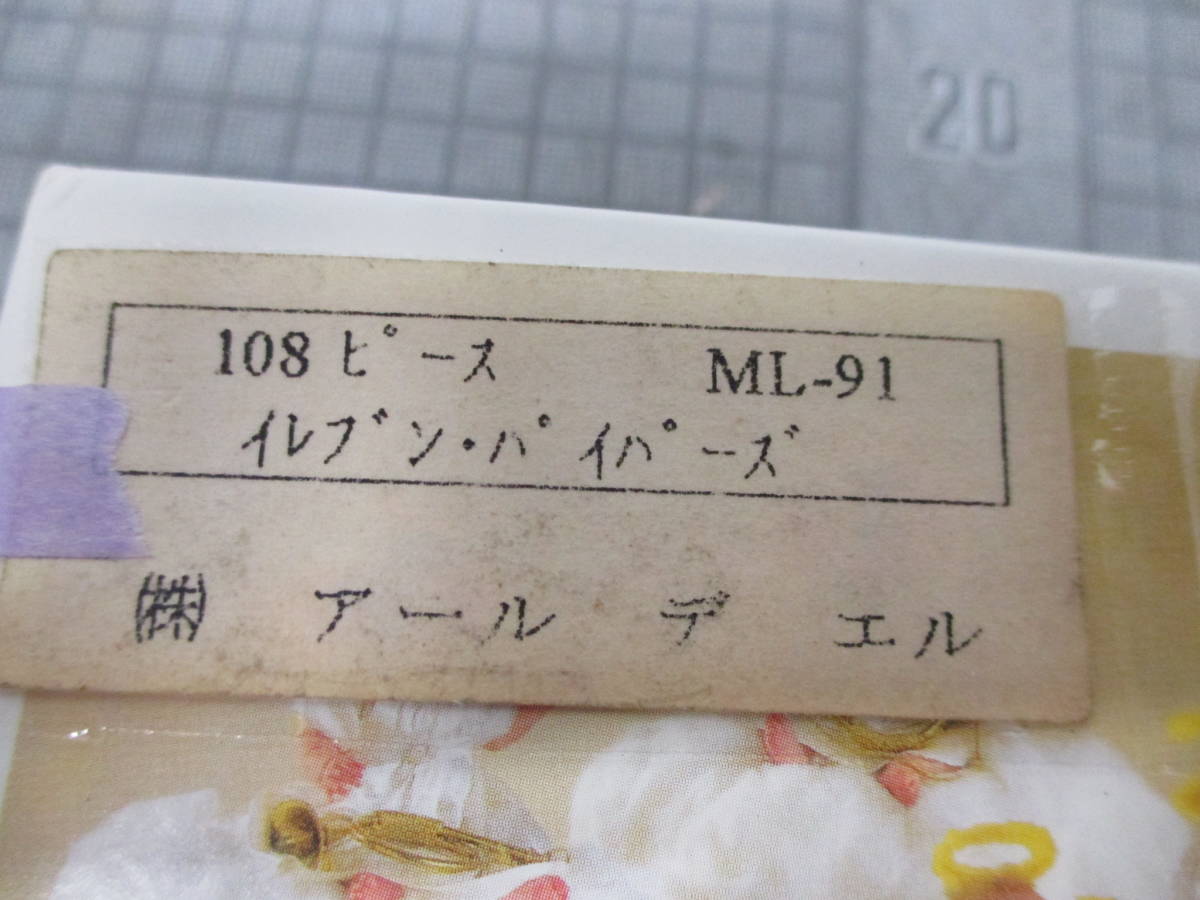 20
108ピース ML-91
イレブン・パイパーズ
㈱ アール デ エル